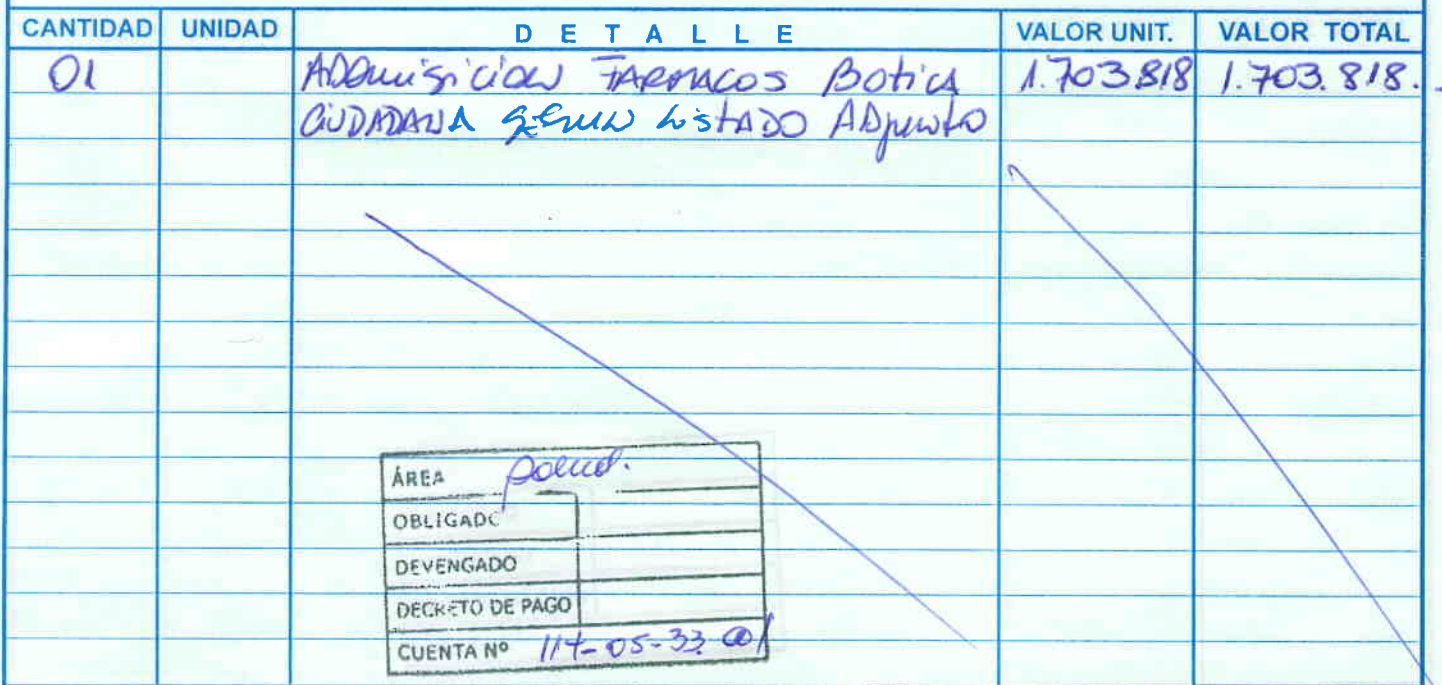 CANTIDAD UNIDAD DETALLE VALOR UNIT. VALOR TOTAL
01 ADquisicion FARMACOS Botica 1.703.818 1.703.818.-
CIUDADANA SEGUN LISTADO ADjunto
ÁREA Salud.
OBLIGADO
DEVENGADO
DECRETO DE PAGO
CUENTA Nº 114-05-33